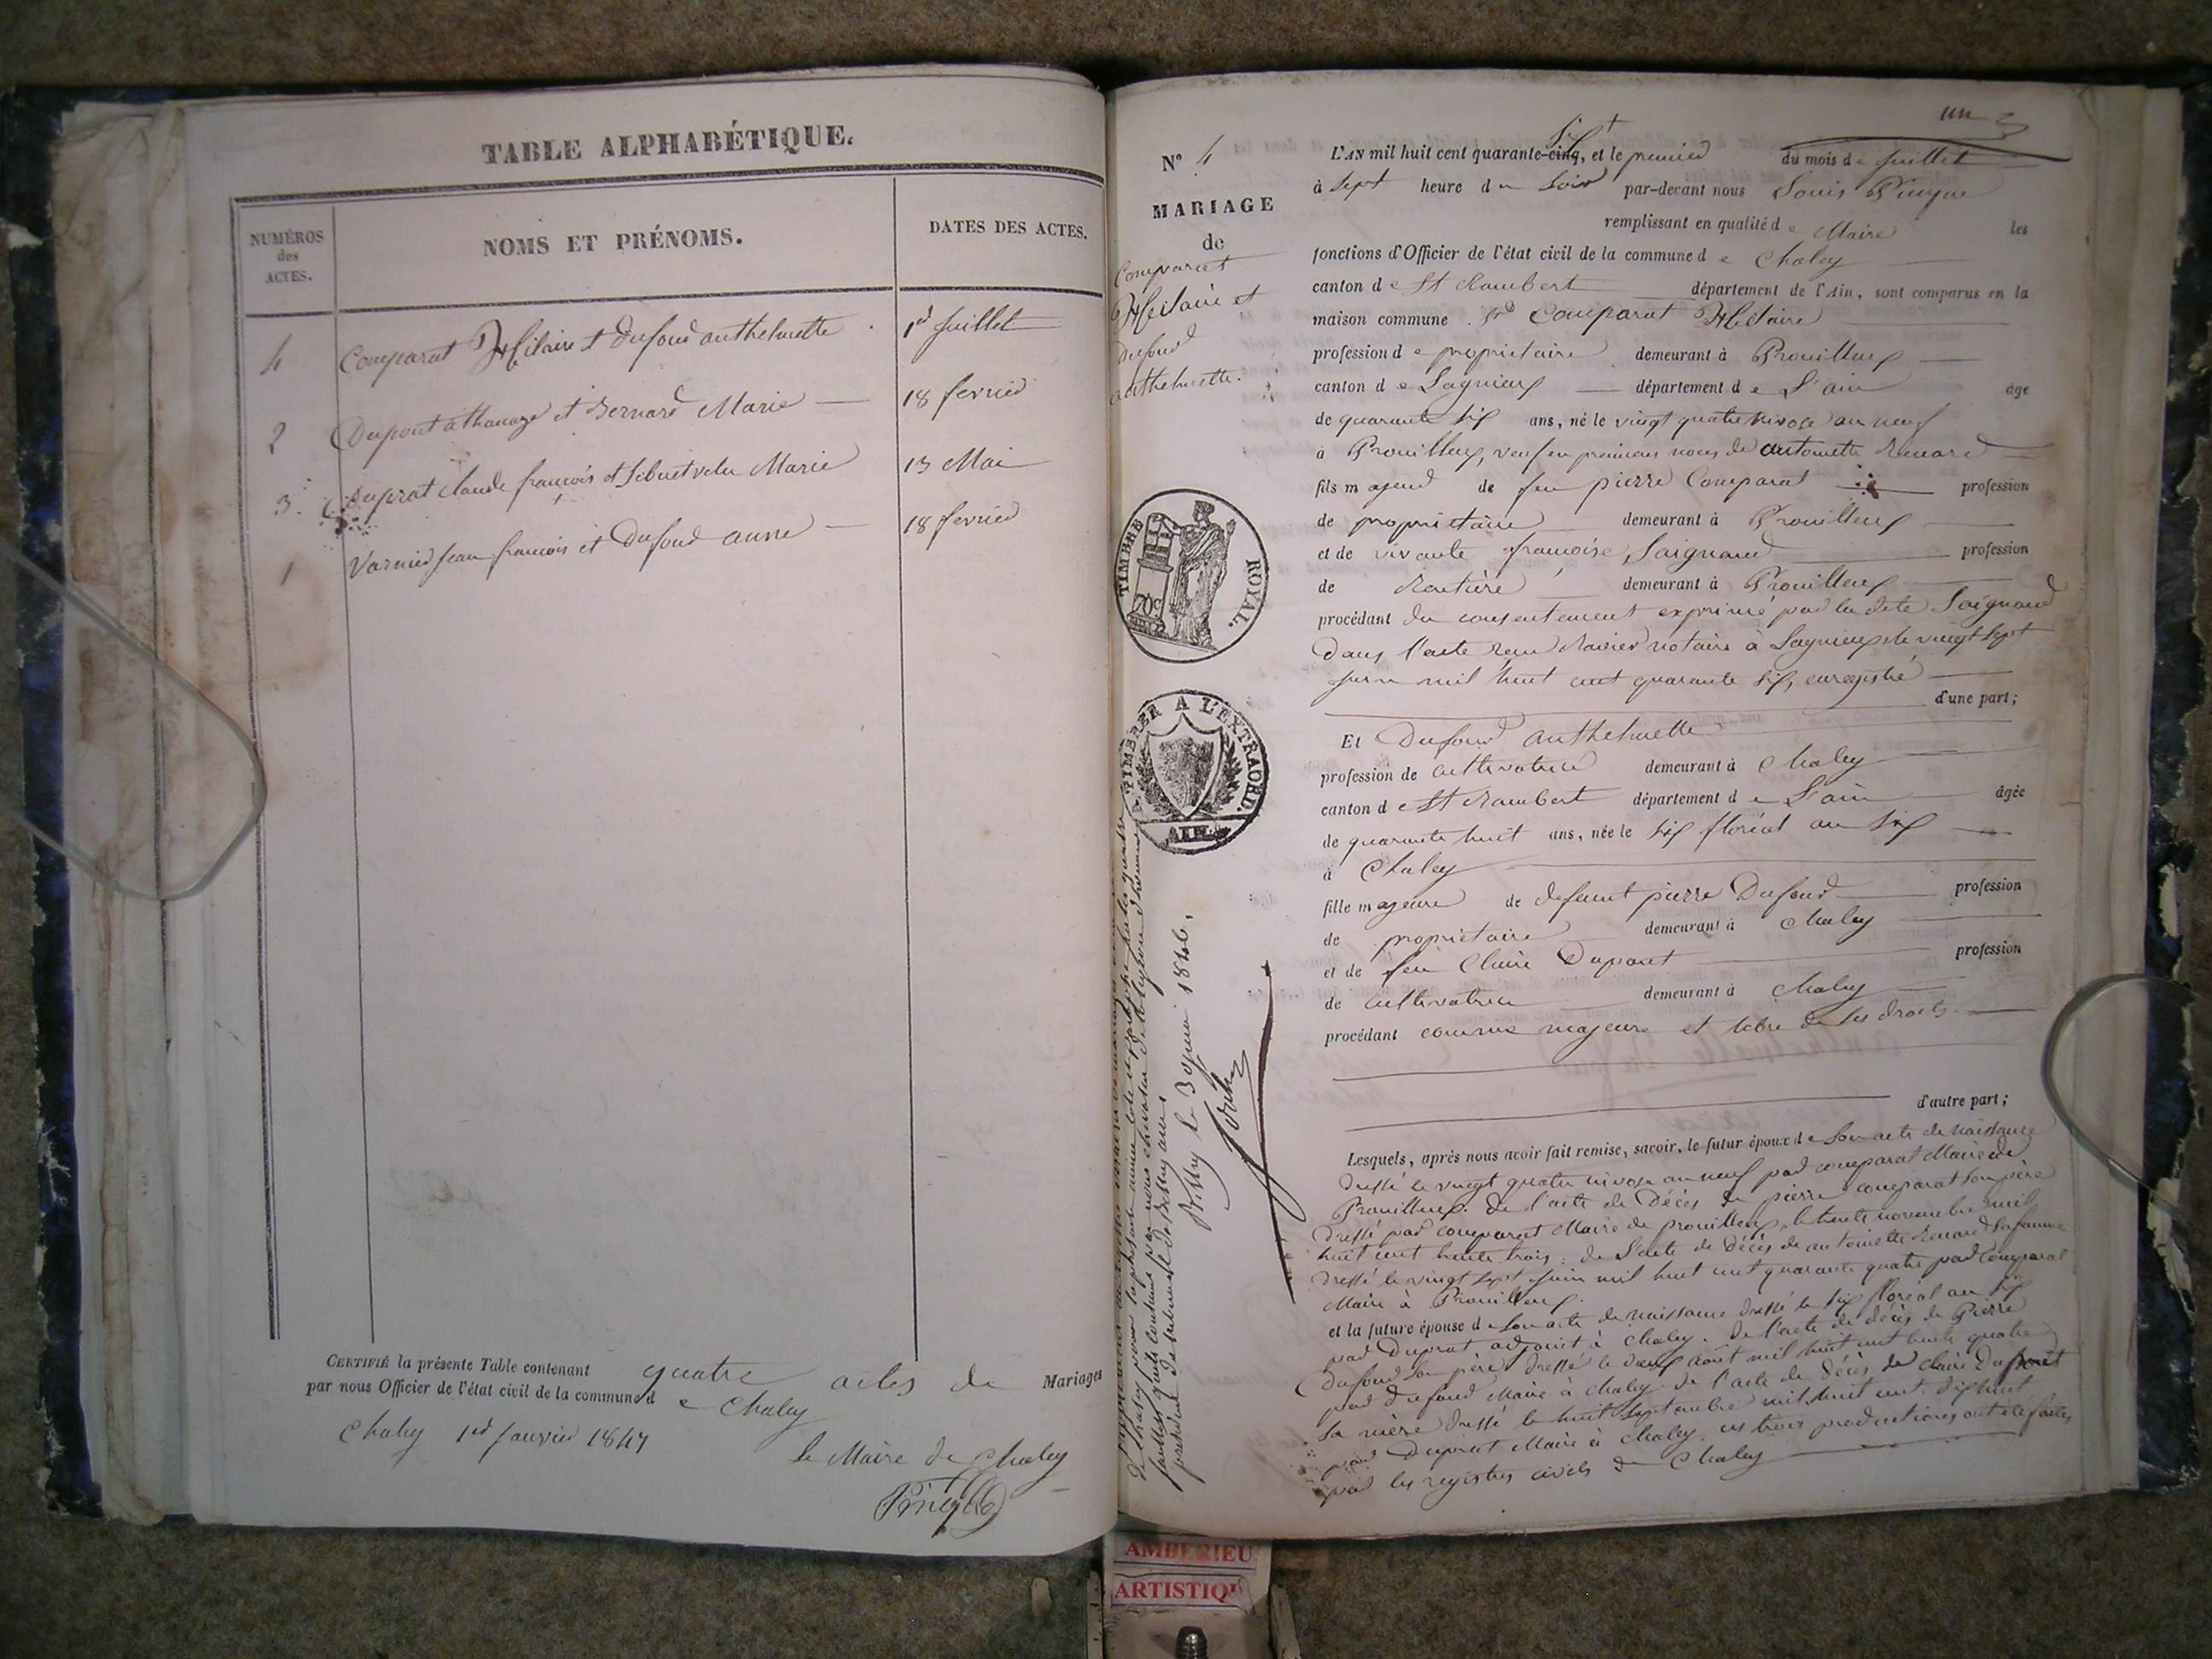 TABLE ALPHABÉTIQUE.
NUMÉROS des ACTES.
NOMS ET PRÉNOMS.
DATES DES ACTES.
4 Comparat Hilaire et Dufour anthelmette 1er Juillet
2 Dupont athanaze et Bernard Marie 18 fevrier
3 Duprat Claude françois et Marie 13 Mai
1 Varnier Jean francois et Dufour anne 18 fevrier
CERTIFIÉ la présente Table contenant quatre actes de Mariages
par nous Officier de l'état civil de la commune de Chaley
Chaley 1er Janvier 1847
le Maire de Chaley
un
N° 4
MARIAGE
de
Comparat
Hilaire et
Dufour
anthelmette.
TIMBRE ROYAL.
70c
TIMBRER A L'EXTRAORD.
AIN.
L'AN mil huit cent quarante-cinq, six et le premier du mois de Juillet
à Sept heure du Soir par-devant nous Louis
remplissant en qualité de Maire les
fonctions d'Officier de l'état civil de la commune de Chaley
canton de St Rambert département de l'Ain, sont comparus en la
maison commune Sr Comparat Hilaire
profession de propriétaire demeurant à Prouilleux
canton de Lagnieux département de L'ain âgé
de quarante six ans, né le vingt quatre nivose an neuf
à Prouilleux, veuf en premieres noces de antoinette Renard
fils majeur de feu pierre Comparat profession
de propriétaire demeurant à Prouilleux
et de vivante françoise Saignard profession
de Rentière demeurant à Prouilleux
procédant du consentement exprimé par la dite Saignard
dans l'acte reçu notaire à Lagnieux le vingt sept
juin mil huit cent quarante six, enregistré
d'une part;
Et Dufour anthelmette
profession de cultivatrice demeurant à Chaley
canton de St Rambert département de L'ain âgée
de quarante huit ans, née le six floréal an six
à Chaley
fille majeure de defunt pierre Dufour profession
de propriétaire demeurant à Chaley
et de feu Claire Dupont profession
de cultivatrice demeurant à Chaley
procédant comme majeure et libre de ses droits.
d'autre part;
Lesquels, après nous avoir fait remise, savoir, le futur époux de Son acte de naissance
dressé le vingt quatre nivose an neuf par comparat Maire de
Prouilleux. de l'acte de Décès de pierre comparat son père
dressé par comparat Maire de prouilleux, le trente novembre mil
huit cent trente trois: de l'acte de Décès de antoinette Renard sa femme
dressé le vingt sept juin mil huit cent quarante quatre par Comparat
Maire à Prouilleux.
et la future épouse de Son acte de naissance dressé le six floréal an six
par Duprat adjoint à Chaley. de l'acte de décès de Pierre
Dufour son père dressé le août mil huit cent trente quatre
par Dufour Maire à Chaley. de l'acte de décès de Claire Dupont
sa mère dressé le huit Septembre mil huit cent dix huit
par Duprat Maire à Chaley. ces trois productions ont été faites
par les registres civils de Chaley
président du tribunal de
le 3 1846.
AMBERIEU
ARTISTIQU